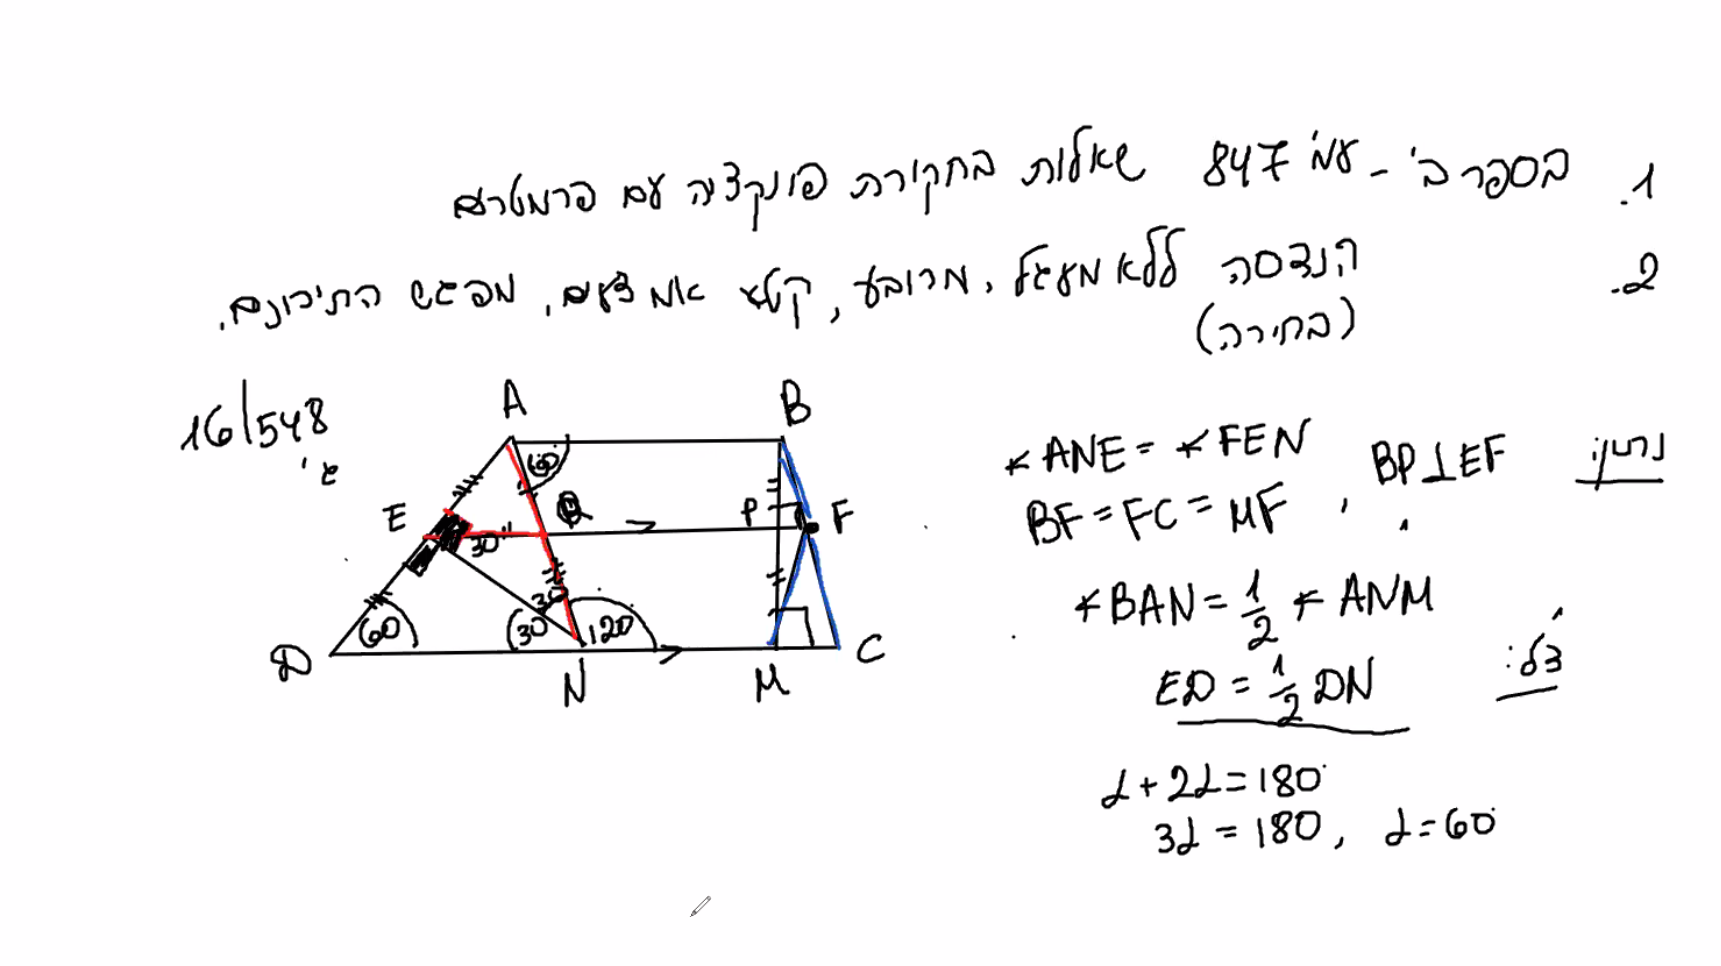 1. בספר ב' - עמ' 847 שאלות בחקירת פונקציה עם פרמטרים
2. הנדסה ללא מעגל, מרובע, קטע אמצעים, מפגש התיכונים.
(בחירה)
16/548
ג'
A
B
60°
E
Q
P
F
30°
30
D
60
30
120
N
M
C
נתון:
∢ANE = ∢FEN
BP⊥EF
BF = FC = MF ,
∢BAN = 1/2 ∢ANM
צ"ל:
ED = 1/2 DN
α + 2α = 180°
3α = 180 , α = 60°